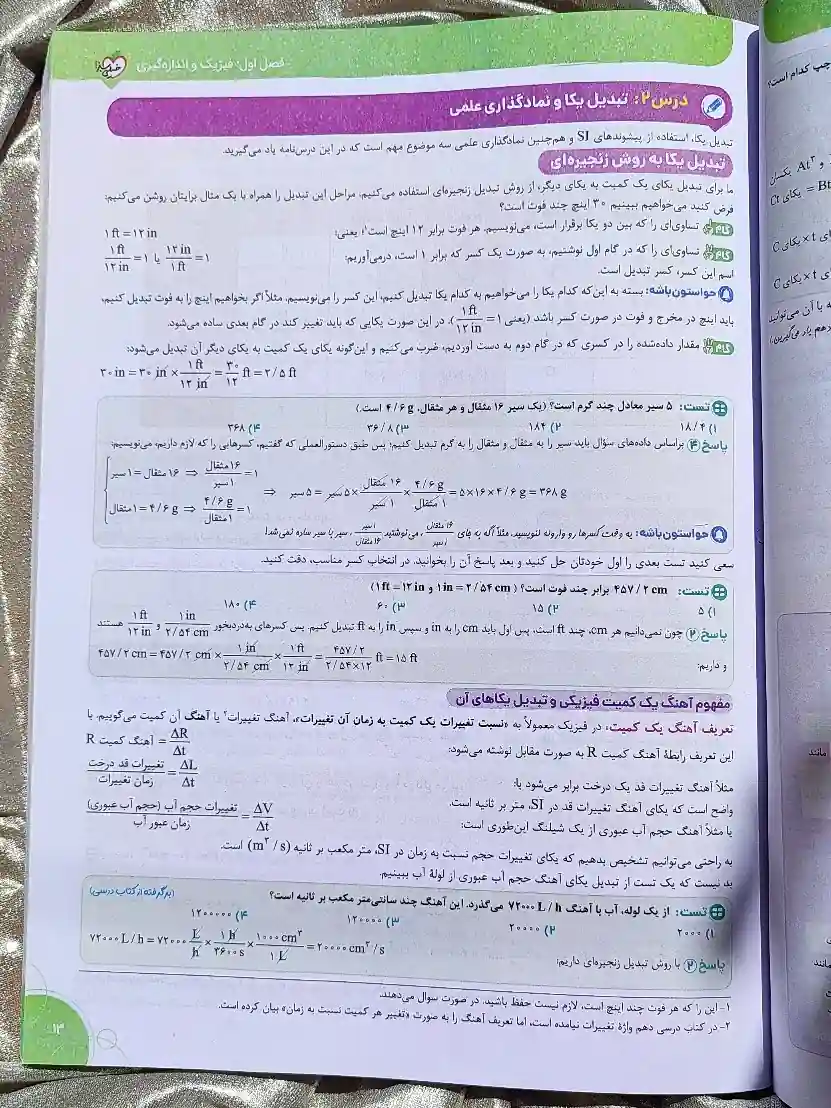 فصل اول: فیزیک و اندازه‌گیری
درس ۲: تبدیل یکا و نمادگذاری علمی
تبدیل یکا، استفاده از پیشوندهای SI و هم‌چنین نمادگذاری علمی سه موضوع مهم است که در این درس‌نامه یاد می‌گیرید.
تبدیل یکا به روش زنجیره‌ای
ما برای تبدیل یکای یک کمیت به یکای دیگر، از روش تبدیل زنجیره‌ای استفاده می‌کنیم. مراحل این تبدیل را همراه با یک مثال برایتان روشن می‌کنیم:
فرض کنید می‌خواهیم ببینیم ۳۰ اینچ چند فوت است؟
گام ۱ تساوی‌ای را که بین دو یکا برقرار است، می‌نویسیم. هر فوت برابر ۱۲ اینچ است۱؛ یعنی: ۱ ft = ۱۲ in
گام ۲ تساوی‌ای را که در گام اول نوشتیم، به صورت یک کسر که برابر ۱ است، درمی‌آوریم: ۱ ft / ۱۲ in = ۱ یا ۱۲ in / ۱ ft = ۱
اسم این کسر، کسر تبدیل است.
حواستون باشه: بسته به این‌که کدام یکا را می‌خواهیم به کدام یکا تبدیل کنیم، این کسر را می‌نویسیم. مثلاً اگر بخواهیم اینچ را به فوت تبدیل کنیم،
باید اینچ در مخرج و فوت در صورت کسر باشد (یعنی ۱ ft / ۱۲ in = ۱). در این صورت یکایی که باید تغییر کند در گام بعدی ساده می‌شود.
گام ۳ مقدار داده‌شده را در کسری که در گام دوم به دست آوردیم، ضرب می‌کنیم و این‌گونه یکای یک کمیت به یکای دیگر آن تبدیل می‌شود:
۳۰ in = ۳۰ in × ۱ ft / ۱۲ in = ۳۰ / ۱۲ ft = ۲/۵ ft
تست: ۵ سیر معادل چند گرم است؟ (یک سیر ۱۶ مثقال و هر مثقال، ۴/۶ g است.)
۱) ۱۸/۴ ۲) ۱۸۴ ۳) ۳۶/۸ ۴) ۳۶۸
پاسخ ۴ براساس داده‌های سؤال باید سیر را به مثقال و مثقال را به گرم تبدیل کنیم؛ پس طبق دستورالعملی که گفتیم، کسرهایی را که لازم داریم، می‌نویسیم:
۱ سیر = ۱۶ مثقال ⇒ ۱۶ مثقال / ۱ سیر = ۱
۱ مثقال = ۴/۶ g ⇒ ۴/۶ g / ۱ مثقال = ۱
⇒ ۵ سیر = ۵ سیر × ۱۶ مثقال / ۱ سیر × ۴/۶ g / ۱ مثقال = ۵×۱۶×۴/۶ g = ۳۶۸ g
حواستون باشه: یه وقت کسرها رو وارونه ننویسید. مثلاً اگه به جای ۱۶ مثقال / ۱ سیر، می‌نوشتید ۱ سیر / ۱۶ مثقال، سیر با سیر ساده نمی‌شد!
سعی کنید تست بعدی را اول خودتان حل کنید و بعد پاسخ آن را بخوانید. در انتخاب کسر مناسب، دقت کنید.
تست: ۴۵۷/۲ cm برابر چند فوت است؟ (۱ in = ۲/۵۴ cm و ۱ ft = ۱۲ in)
۱) ۵ ۲) ۱۵ ۳) ۶۰ ۴) ۱۸۰
پاسخ ۲ چون نمی‌دانیم هر cm، چند ft است، پس اول باید cm را به in و سپس in را به ft تبدیل کنیم. پس کسرهای به‌دردبخور ۱ in / ۲/۵۴ cm و ۱ ft / ۱۲ in هستند
و داریم: ۴۵۷/۲ cm = ۴۵۷/۲ cm × ۱ in / ۲/۵۴ cm × ۱ ft / ۱۲ in = ۴۵۷/۲ / ۲/۵۴×۱۲ ft = ۱۵ ft
مفهوم آهنگ یک کمیت فیزیکی و تبدیل یکاهای آن
تعریف آهنگ یک کمیت، در فیزیک معمولاً به «نسبت تغییرات یک کمیت به زمان آن تغییرات»، آهنگ تغییرات۲ یا آهنگ آن کمیت می‌گوییم. با
این تعریف رابطۀ آهنگ کمیت R به صورت مقابل نوشته می‌شود: آهنگ کمیت R = ΔR / Δt
مثلاً آهنگ تغییرات قد یک درخت برابر می‌شود با: تغییرات قد درخت / زمان تغییرات = ΔL / Δt
واضح است که یکای آهنگ تغییرات قد در SI، متر بر ثانیه است.
یا مثلاً آهنگ حجم آب عبوری از یک شیلنگ این‌طوری است: تغییرات حجم آب (حجم آب عبوری) / زمان عبور آب = ΔV / Δt
به راحتی می‌توانیم تشخیص بدهیم که یکای تغییرات حجم نسبت به زمان در SI، متر مکعب بر ثانیه (m³/s) است.
بد نیست که یک تست از تبدیل یکای آهنگ حجم آب عبوری از لولۀ آب ببینیم.
تست: از یک لوله، آب با آهنگ ۷۲۰۰۰ L/h می‌گذرد. این آهنگ چند سانتی‌متر مکعب بر ثانیه است؟ (برگرفته از کتاب درسی)
۱) ۲۰۰۰ ۲) ۲۰۰۰۰ ۳) ۱۲۰۰۰۰ ۴) ۱۲۰۰۰۰۰
پاسخ ۲ با روش تبدیل زنجیره‌ای داریم: ۷۲۰۰۰ L/h = ۷۲۰۰۰ L / h × ۱ h / ۳۶۰۰ s × ۱۰۰۰ cm³ / ۱ L = ۲۰۰۰۰ cm³/s
۱- این را که هر فوت چند اینچ است، لازم نیست حفظ باشید. در صورت سوال می‌دهند.
۲- در کتاب درسی دهم واژۀ تغییرات نیامده است، اما تعریف آهنگ را به صورت «تغییر هر کمیت نسبت به زمان» بیان کرده است.
۱۳